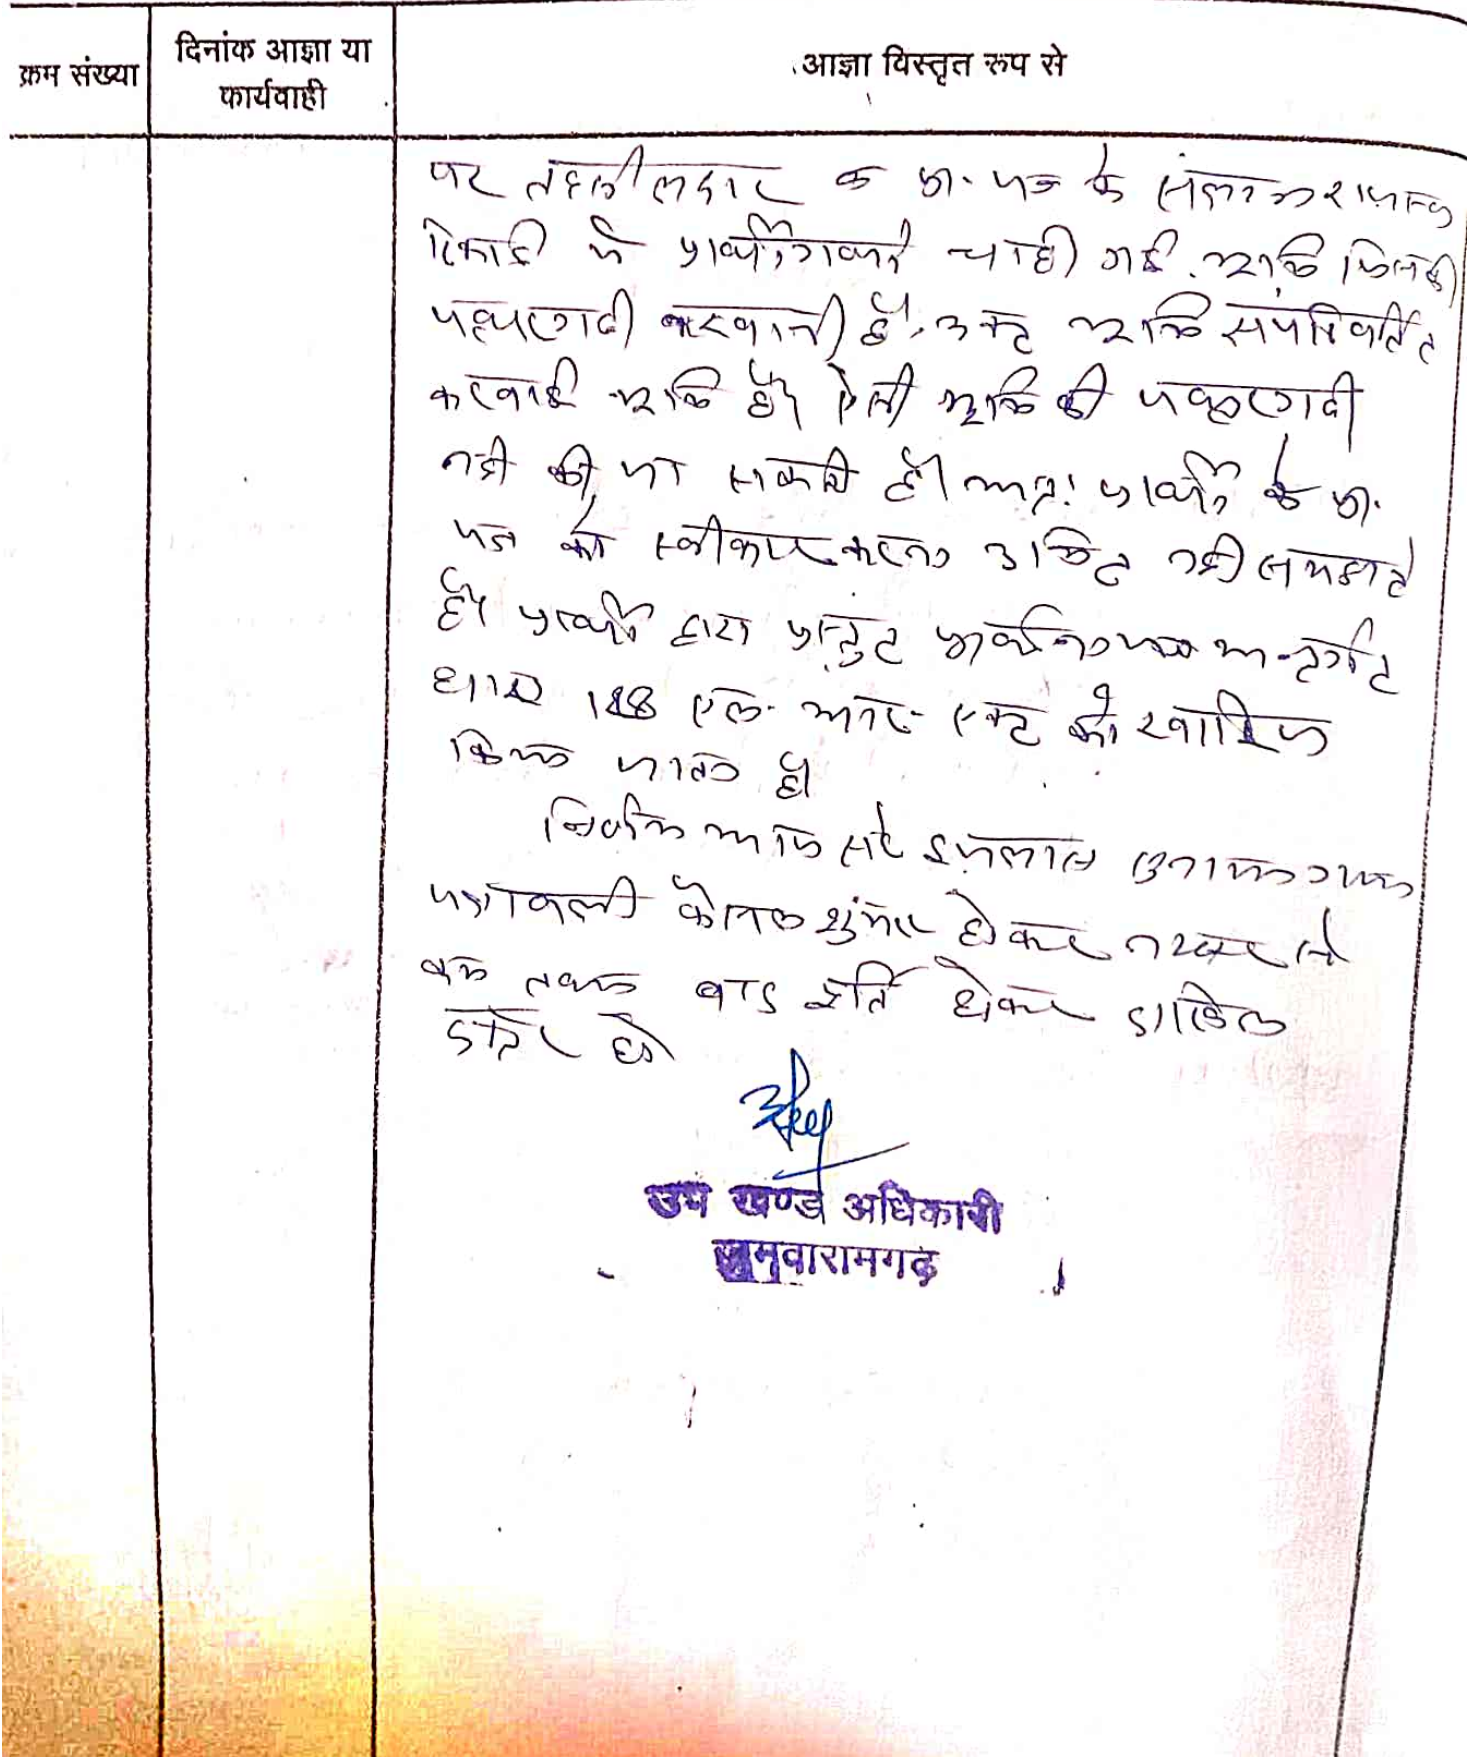 क्रम संख्या
दिनांक आज्ञा या
कार्यवाही
आज्ञा विस्तृत रूप से
पर तहसीलदार के प्रा. पत्र के संलग्न राजस्व
रिकार्ड में चाही गई भूमि जिसकी
पत्थरगढी करवानी है, उक्त भूमि संपरिवर्तित
करवाई भूमि है। ऐसी भूमि की पत्थरगढी
नही की जा सकती है। अतः प्रार्थी के प्रा.
पत्र को स्वीकार करना उचित नही समझते
है। प्रार्थी द्वारा प्रस्तुत प्रार्थना पत्र अन्तर्गत
धारा 128 एल. आर. एक्ट को खारिज
किया जाता है।
निर्णय आज सरे इजलास सुनाया गया
पत्रावली फैसल शुमार होकर नम्बर से
कम तकमील होकर दाखिल
दफ्तर हो
उप खण्ड अधिकारी
जमवारामगढ़